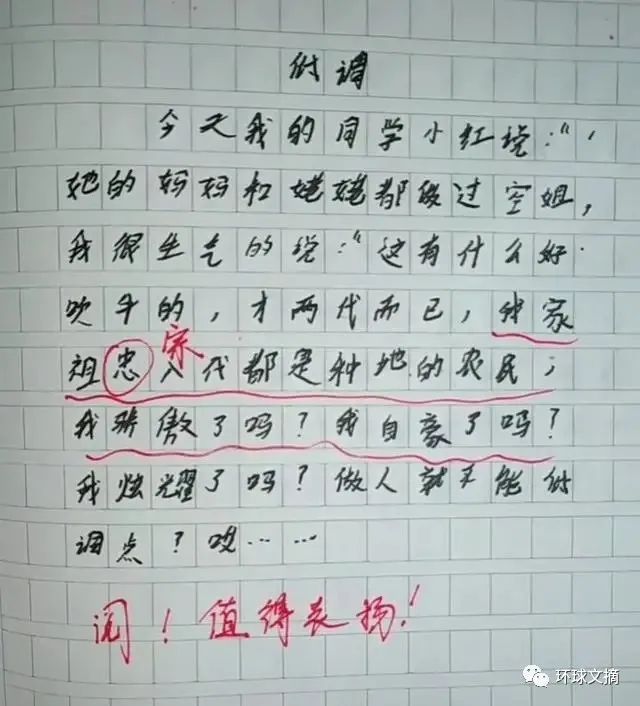 低调
今天我的同学小红说:“
她的妈妈和姥姥都做过空姐,
我很生气的说:“这有什么好
吹牛的,才两代而已,我家
宗
祖忠八代都是种地的农民;
我骄傲了吗?我自豪了吗?
我炫耀了吗?做人就不能低
调点?哎……
阅!值得表扬!
环球文摘